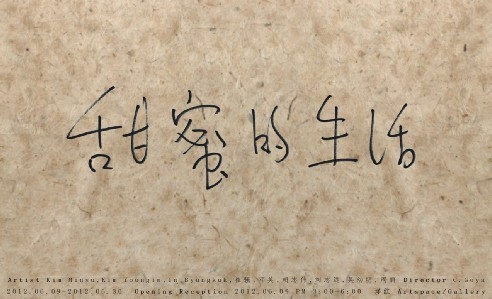 甜蜜的生活
Artist Kim Minsu, Kim Youngin, In Hyungsuk, Director
2012.06.09-2012.06.30 Opening Reception 2012.06.09 PM 3:00-6:00 Artspace/Gallery